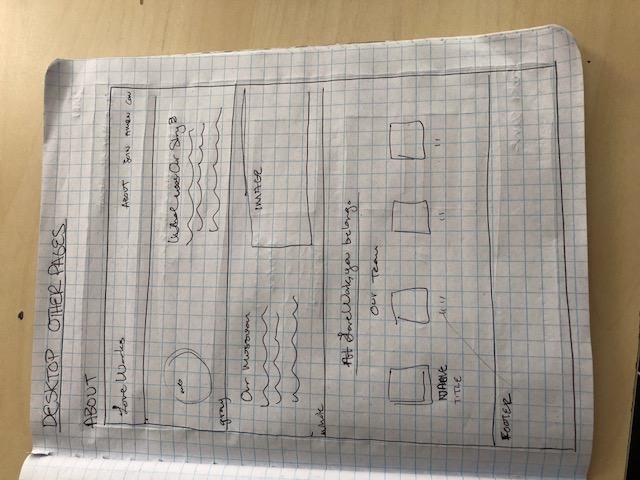 DESKTOP OTHER PAGES
ABOUT
LoveWorks ABOUT JOIN
What was Our Story?
gray
Our Mission
IMAGE
white
At LoveWork, you belong.
Our Team
NAME " " " " " "
TITLE
FOOTER